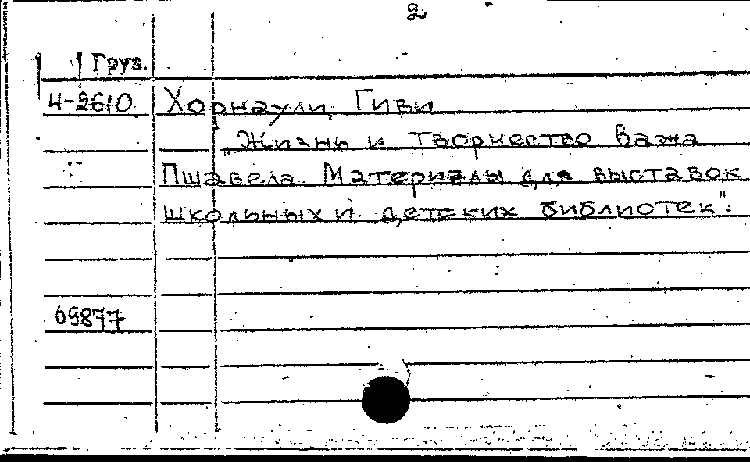 2
Груз.
4-2610 Хорнаули, Гиви
„Жизнь и творчество Важа
Пшавела. Материалы для выставок
школьных и детских библиотек".
69877